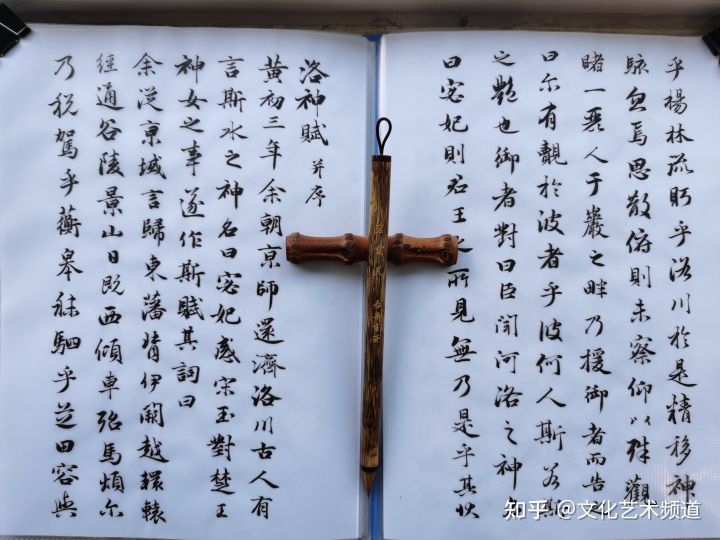 洛神賦 并序
黃初三年余朝京師還濟洛川古人有
言斯水之神名曰宓妃感宋玉對楚王
神女之事遂作斯賦其詞曰
余從京城言歸東藩背伊闕越轘轅
經通谷陵景山日既西傾車殆馬煩尔
乃稅駕乎蘅皋秣駟乎芝田容與
乎楊林流眄乎洛川於是精移神
駭忽焉思散俯則未察仰以殊觀
睹一麗人于巖之畔乃援御者而告
曰尔有覿於彼者乎彼何人斯若斯
之艷也御者對曰臣聞河洛之神
曰宓妃則君王之所見無乃是乎其狀
知乎 @文化艺术频道